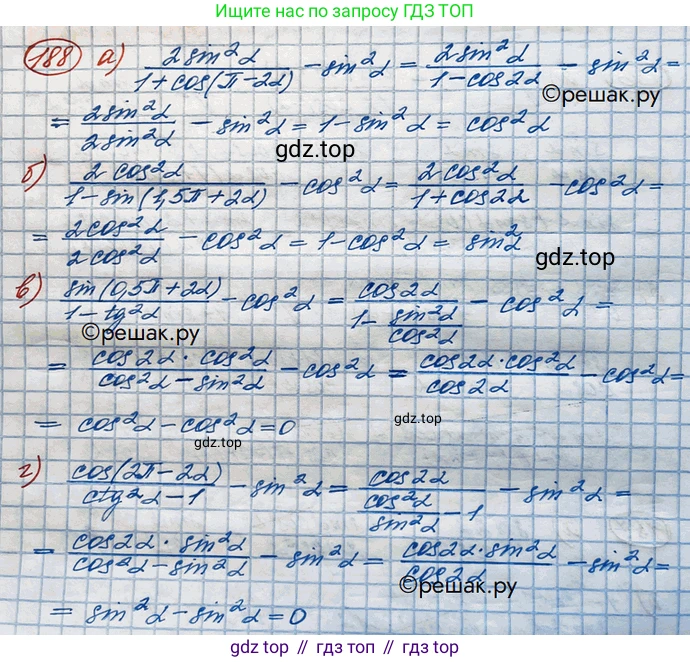 Ищите нас в поиске по запросу ГДЗ ТОП
188 а) 2sin²α / (1+cos(π−2α)) − sin²α = 2sin²α / (1−cos2α) − sin²α =
©решак.ру
= 2sin²α / 2sin²α − sin²α = 1−sin²α = cos²α
gdz.top
б) 2cos²α / (1−sin(1,5π+2α)) − cos²α = 2cos²α / (1+cos2α) − cos²α =
= 2cos²α / 2cos²α − cos²α = 1−cos²α = sin²α
gdz.top
в) sin(0,5π+2α) / (1−tg²α) − cos²α = cos2α / (1− sin²α/cos²α) − cos²α =
©решак.ру
= cos2α·cos²α / (cos²α−sin²α) − cos²α = cos2α·cos²α / cos2α − cos²α =
= cos²α−cos²α=0
gdz.top
gdz.top
г) cos(2π−2α) / (ctg²α−1) − sin²α = cos2α / (cos²α/sin²α −1) − sin²α =
= cos2α·sin²α / (cos²α−sin²α) − sin²α = cos2α·sin²α / cos2α − sin²α =
©решак.ру
= sin²α−sin²α=0
gdz.top // гдз топ // gdz top